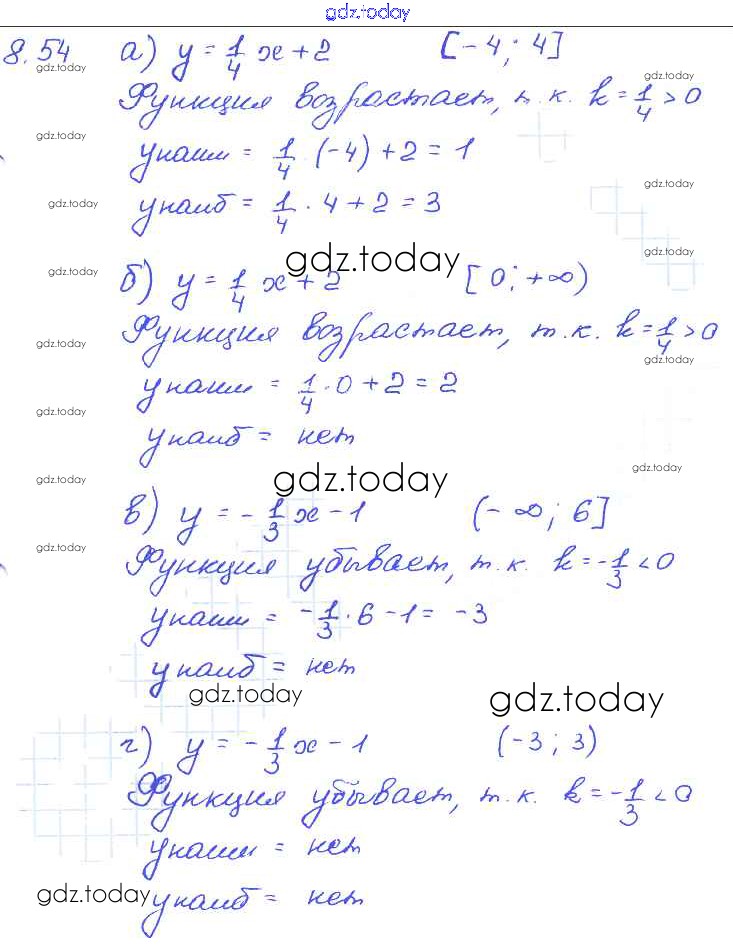 gdz.today
8.54 а) y = 1/4 x + 2 [-4; 4]
gdz.today
gdz.today
Функция возрастает, т.к. k = 1/4 > 0
gdz.today
yнаим = 1/4 · (-4) + 2 = 1
gdz.today
yнаиб = 1/4 · 4 + 2 = 3
gdz.today
gdz.today
gdz.today
gdz.today
б) y = 1/4 x + 2 [0; +∞)
Функция возрастает, т.к. k = 1/4 > 0
gdz.today
gdz.today
yнаим = 1/4 · 0 + 2 = 2
gdz.today
yнаиб = нет
gdz.today
gdz.today
gdz.today
в) y = -1/3 x - 1 (-∞; 6]
gdz.today
Функция убывает, т.к. k = -1/3 < 0
yнаим = -1/3 · 6 - 1 = -3
yнаиб = нет
gdz.today
gdz.today
г) y = -1/3 x - 1 (-3; 3)
Функция убывает, т.к. k = -1/3 < 0
yнаим = нет
gdz.today
yнаиб = нет